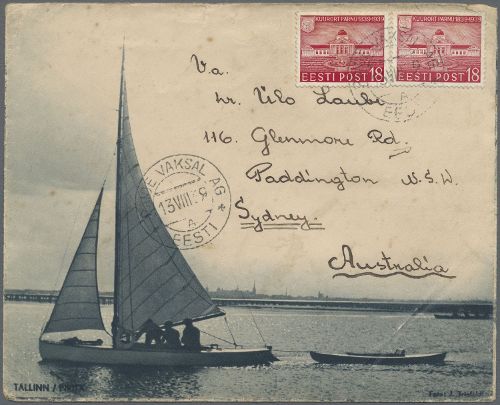 KUURORT PÄRNU 1838-1939
EESTI POST 18
KUURORT PÄRNU 1838-1939
EESTI POST 18
Va.
hr. Ülo Laube
116. Glenmore Rd.
Paddington N.S.W.
Sydney.
Australia
VAKSAL AG
13 VIII 39
A
EESTI
A
EE
TALLINN / PIRITA
Foto: J.